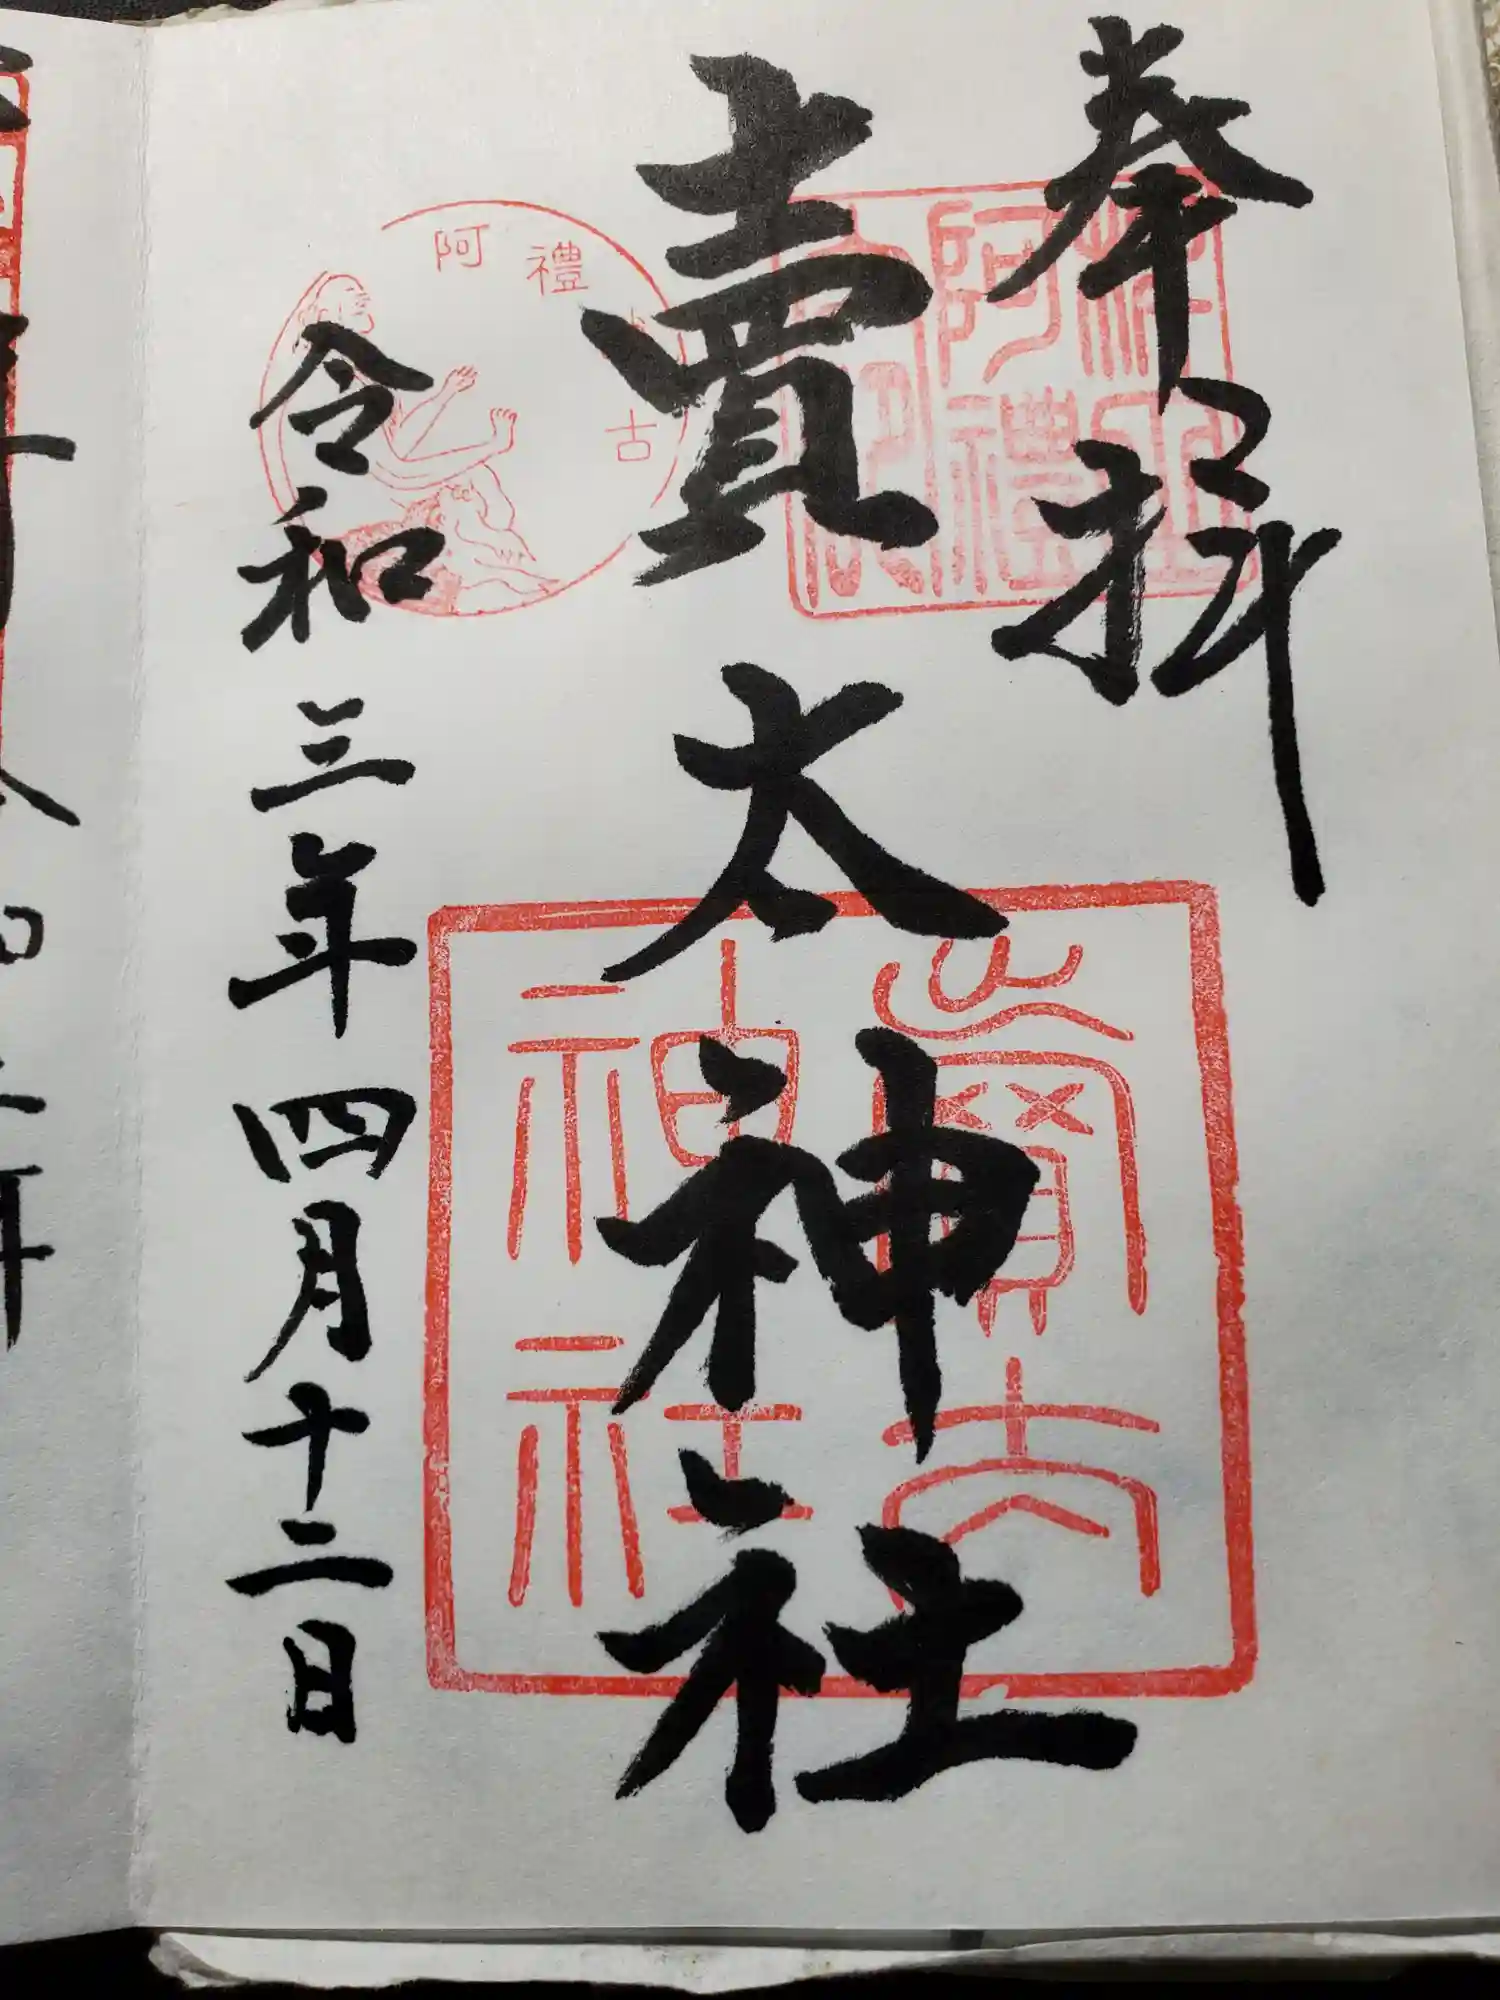 奉拝
賣太神社
令和三年四月十二日
阿禮
古
神社